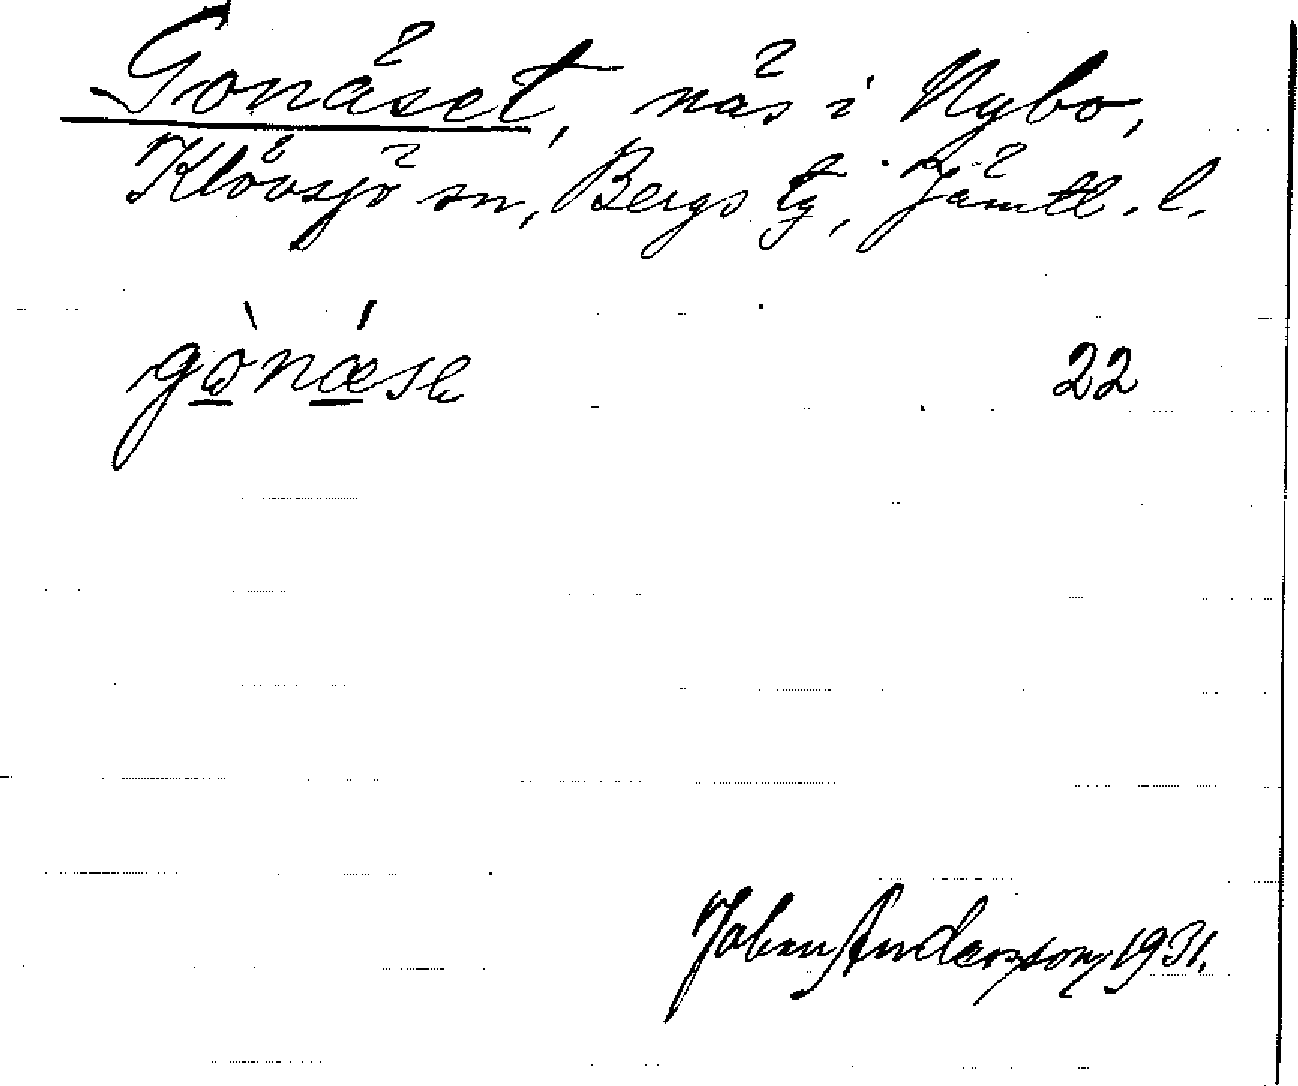 Gonäset, näs i Nybo,
Klövsjö sn, Bergs tg, Jämtl. l.
gònǽsе 22
Johan Andersson, 1931.